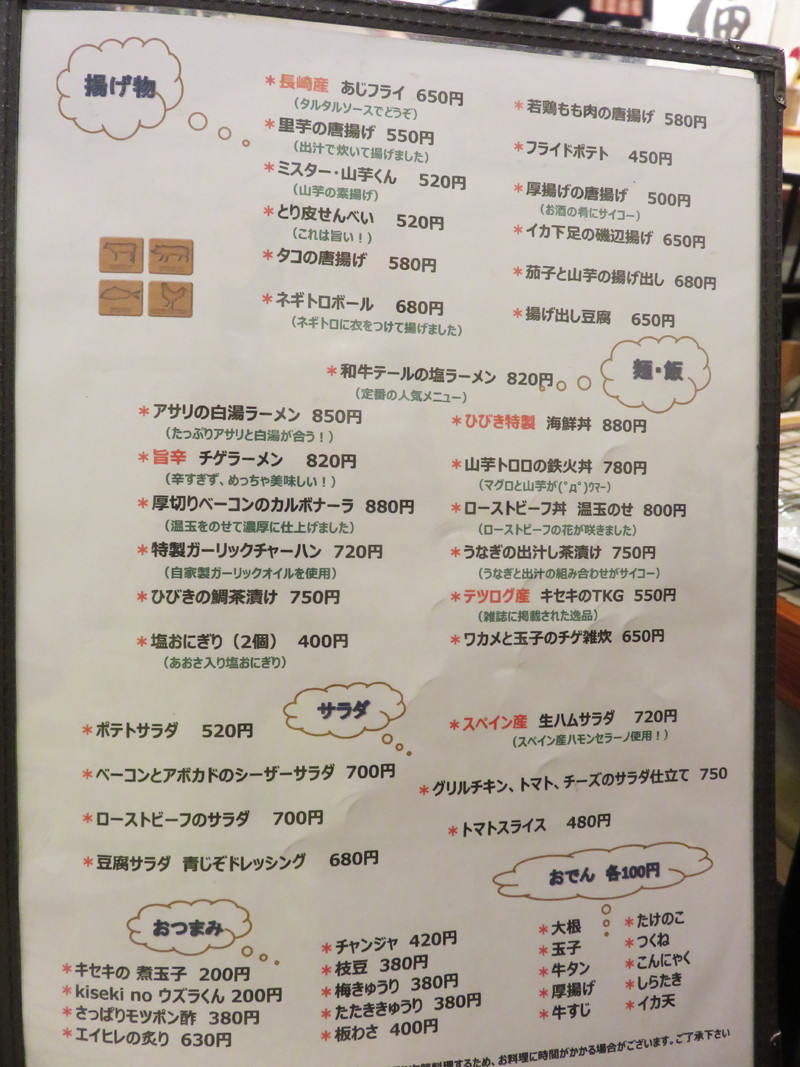 揚げ物
*長崎産 あじフライ 650円
（タルタルソースでどうぞ）
*里芋の唐揚げ 550円
（出汁で炊いて揚げました）
*ミスター・山芋くん 520円
（山芋の素揚げ）
*とり皮せんべい 520円
（これは旨い！）
*タコの唐揚げ 580円
*ネギトロボール 680円
（ネギトロに衣をつけて揚げました）
*若鶏もも肉の唐揚げ 580円
*フライドポテト 450円
*厚揚げの唐揚げ 500円
（お酒の肴にサイコー）
*イカ下足の磯辺揚げ 650円
*茄子と山芋の揚げ出し 680円
*揚げ出し豆腐 650円
麺・飯
*和牛テールの塩ラーメン 820円
（定番の人気メニュー）
*アサリの白湯ラーメン 850円
（たっぷりアサリと白湯が合う！）
*旨辛 チゲラーメン 820円
（辛すぎず、めっちゃ美味しい！）
*厚切りベーコンのカルボナーラ 880円
（温玉をのせて濃厚に仕上げました）
*特製ガーリックチャーハン 720円
（自家製ガーリックオイルを使用）
*ひびきの鯛茶漬け 750円
*塩おにぎり（2個） 400円
（あおさ入り塩おにぎり）
*ひびき特製 海鮮丼 880円
*山芋トロロの鉄火丼 780円
（マグロと山芋が(ﾟдﾟ)ｳﾏｰ）
*ローストビーフ丼 温玉のせ 800円
（ローストビーフの花が咲きました）
*うなぎの出汁し茶漬け 750円
（うなぎと出汁の組み合わせがサイコー）
*テツログ産 キセキのTKG 550円
（雑誌に掲載された逸品）
*ワカメと玉子のチゲ雑炊 650円
サラダ
*ポテトサラダ 520円
*ベーコンとアボカドのシーザーサラダ 700円
*ローストビーフのサラダ 700円
*豆腐サラダ 青じぞドレッシング 680円
*スペイン産 生ハムサラダ 720円
（スペイン産ハモンセラーノ使用！）
*グリルチキン、トマト、チーズのサラダ仕立て 750
*トマトスライス 480円
おつまみ
*キセキの 煮玉子 200円
*kiseki no ウズラくん 200円
*さっぱりモツポン酢 380円
*エイヒレの炙り 630円
*チャンジャ 420円
*枝豆 380円
*梅きゅうり 380円
*たたききゅうり 380円
*板わさ 400円
おでん 各100円
*大根
*玉子
*牛タン
*厚揚げ
*牛すじ
*たけのこ
*つくね
*こんにゃく
*しらたき
*イカ天
料理するため、お料理に時間がかかる場合がございます。ご了承下さい